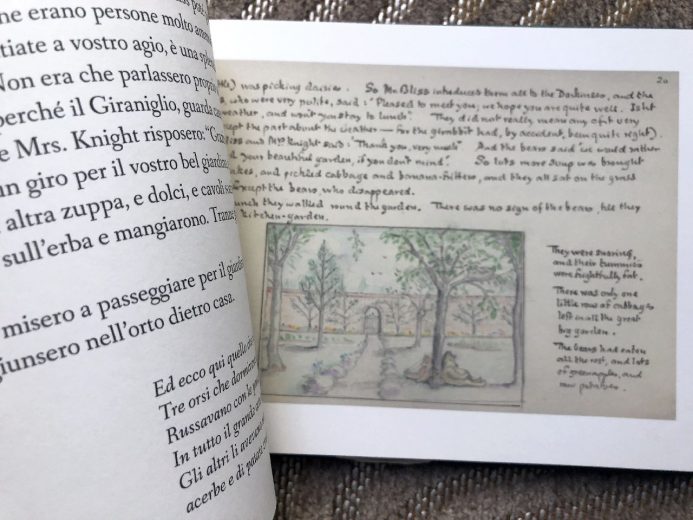 ne erano persone molto
tiate a vostro agio, è una
Non era che parlassero
perché il Giraniglio, guarda
e Mrs. Knight risposero:
un giro per il vostro bel
altra zuppa, e dolci, e cavoli
sull'erba e mangiarono.
misero a passeggiare per il
giunsero nell'orto dietro casa.
Ed ecco qui
Tre orsi che
Russavano con le
In tutto il grande
Gli altri li
acerbe e di
20
was picking daisies. So Mr Bliss introduced them all to the Dorkinses, and the
who were very polite, said: "Pleased to meet you; we hope you are quite well. Isn't
weather, and won't you stay to lunch". They did not really mean any of it very
except the part about the weather — for the girabbit had, by accident, been quite right).
and Mrs Knight said: "Thank you, very much" And the bears said "we would rather
your beautiful garden, if you don't mind." So lots more soup was brought
cakes, and pickled cabbage and banana-fritters, and they all sat on the grass
except the bears, who disappeared.
lunch they walked round the garden. There was no sign of the bears, till they
kitchen-garden.
They were snoring,
and their tummies
were frightfully fat.
There was only one
little row of cabbages
left in all the great
big garden.
The bears had eaten
all the rest, and lots
of greenapples, and
raw potatoes.